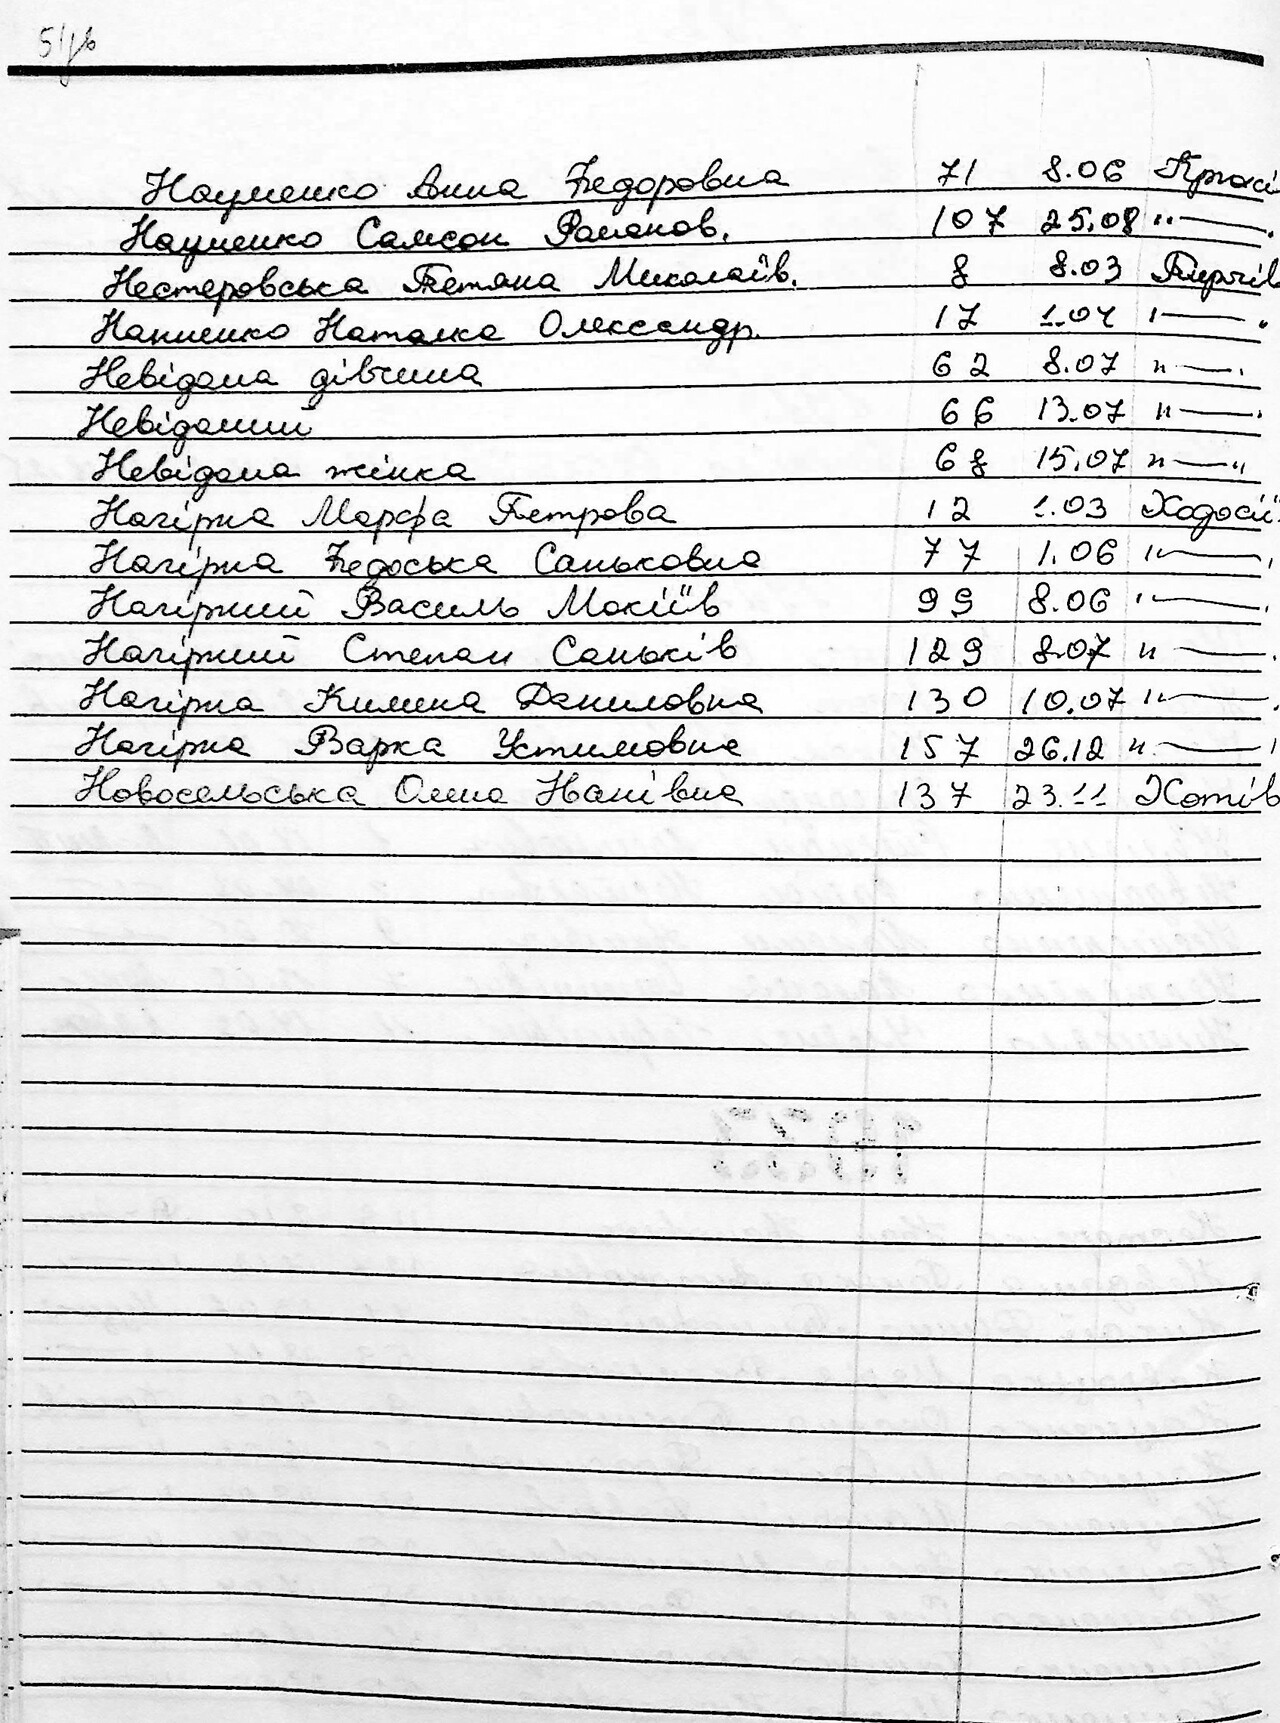 Науменко Анна Федоровна 71 8.06 Крюкі
Науменко Самсон Романов. 107 25.08 "—.
Нестеровська Тетяна Миколаїв. 8 8.03 Пирогів
Наименко Наталка Олександр. 17 1.04 "—"
Невідома дівчина 62 8.07 "—.
Невідомий 66 13.07 "—.
Невідома жінка 68 15.07 "—"
Нагірна Марфа Петрова 12 1.03 Ходосії.
Нагірна Федоська Саньковна 77 1.06 "—,
Нагірний Василь Мокіїв 99 8.06 "—.
Нагірний Степан Саньків 129 8.07 "—.
Нагірна Килина Даниловна 130 10.07 "—.
Нагірна Варка Устимовна 157 26.12 "—"
Новосельська Олена Іванівна 137 23.11 Хотів